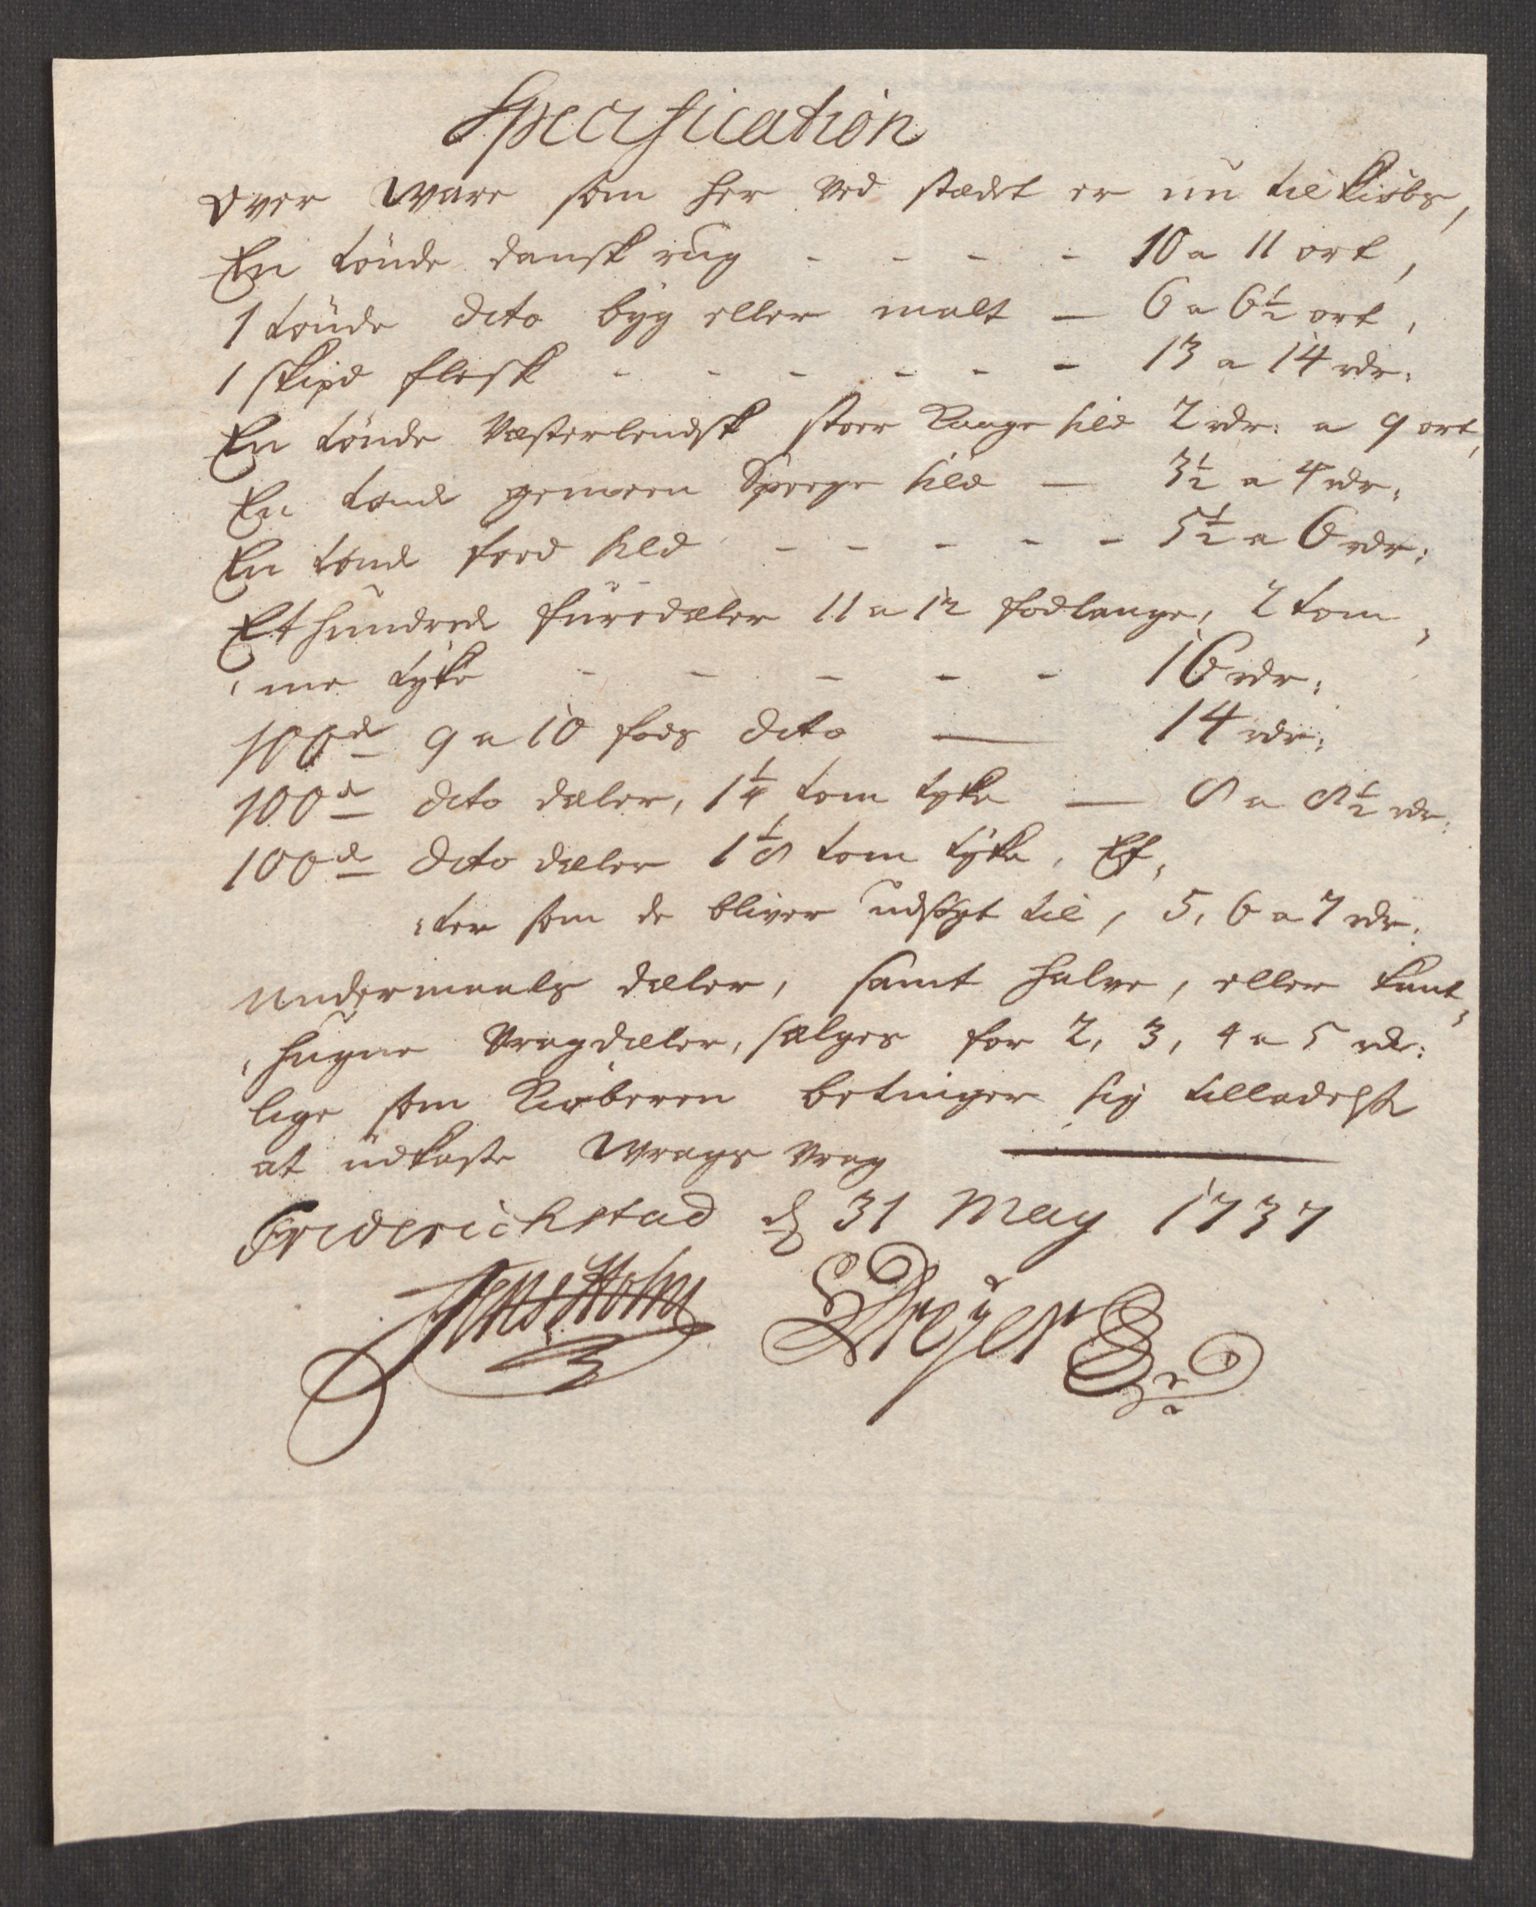 Specification
over Ware som her ved stædet er nu til kiøbs,
En tönde dansk rug - - - - 10 a 11 ort,
1 tönde dito byg eller malt — 6 a 6½ ort,
1 skipd flesk - - - - - - 13 a 14 rdr:
En tönde Vesterlendsk stoer Kaage sild 2 rdr: a 9 ort,
En tönde gemeen Speege sild — 3½ a 4 rdr:
En tönd feed sild - - - - - 5½ a 6 rdr:
Et hundrede füredæler 11 a 12 fodlange, 2 tom-
me tyke - - - - - 16 rdr:
100de 9 a 10 fods dito — 14 rdr:
100de dito dæler, 1¼ tom tyke — 8 a 8½ rdr:
100de dito dæler 1⅛ tom tyke, Ef-
ter som de bliver udsögt til, 5, 6 a 7 rdr:
Undermaals dæler, samt halve, eller kant-
hugne Vragdæler, sælges for 2, 3, 4 a 5 rdr:
lige som Kiøberen betinger sig tilladelse
at udkaste Wrags Vrag
Friderichstad d 31 May 1737
Jens Holm Dreyer